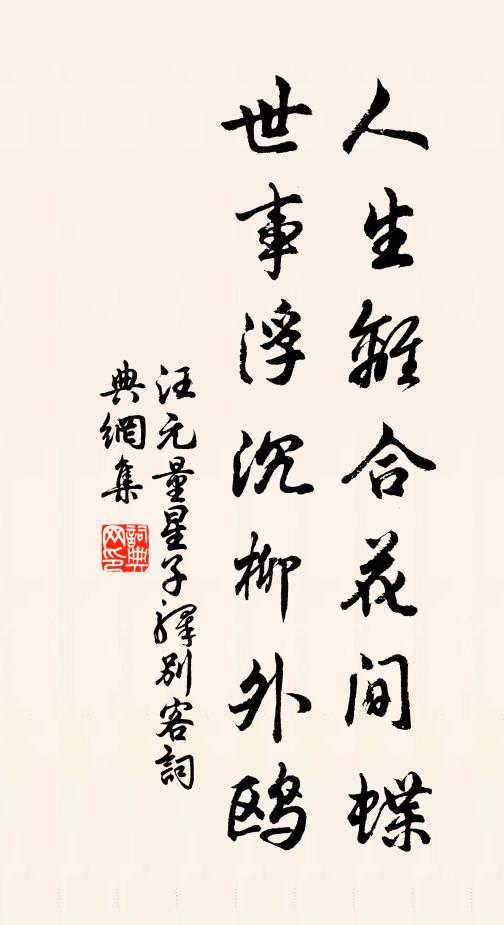 人生離合花間蝶
世事浮沉柳外鷗
汪元量星子驛別客詞
典網集
詞典
网印